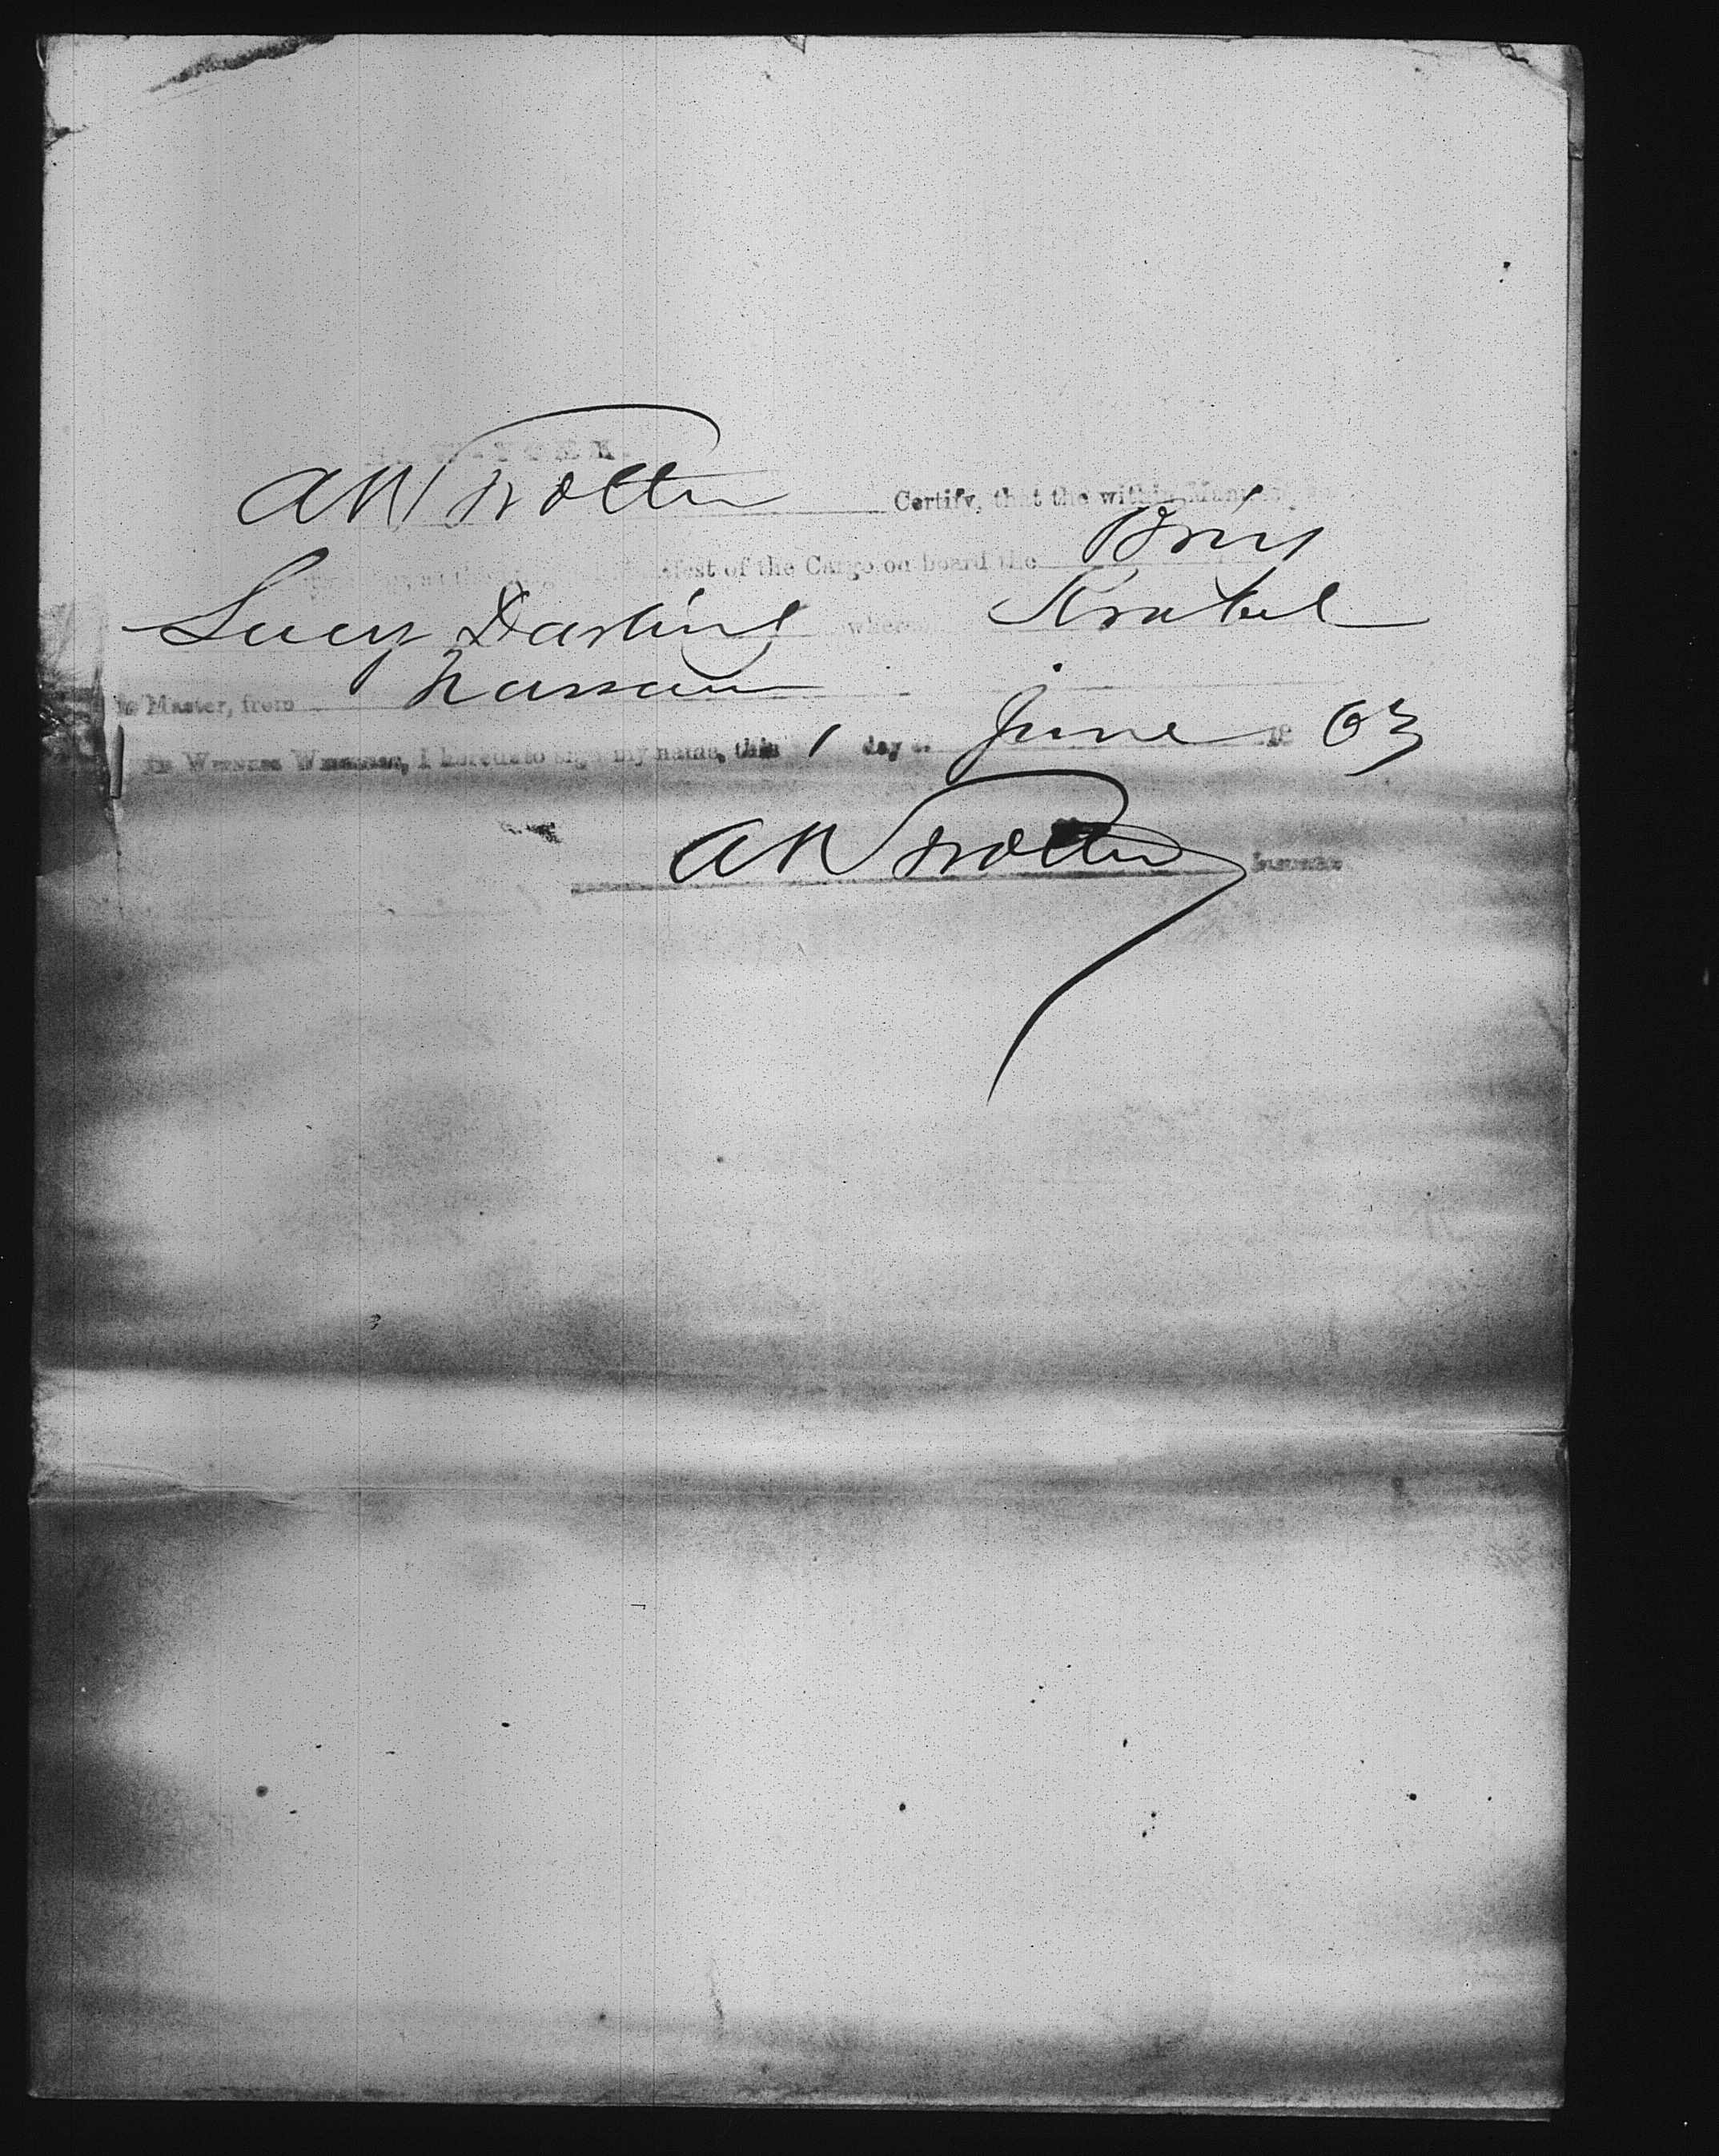 AW Trotter Certify, that the within Manifest
Manifest of the Cargo on board the Brig
Lucy Darling whereof
is Master, from Nassau
In Witness Whereof, I hereunto sign my name, this 1 day of June 18 63
AW Trotter Inspector